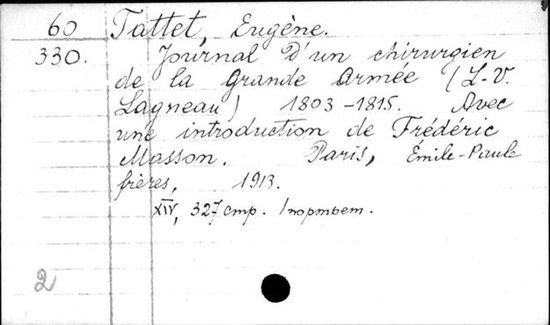 60 Tattet, Eugène.
330. Journal D'un chirurgien
de la Grande Armée (L.-V.
Lagneau) 1803-1815. Avec
une introduction de Frédéric
Masson. Paris, Émile-Paule
frères, 1913.
XIV, 327 стр. 1 портрет.
2